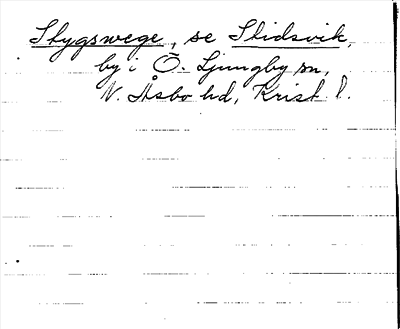 Skygswege, se Skidsvik,
by i Ö. Ljungby sn,
N. Åsbo hd, Krist. l.